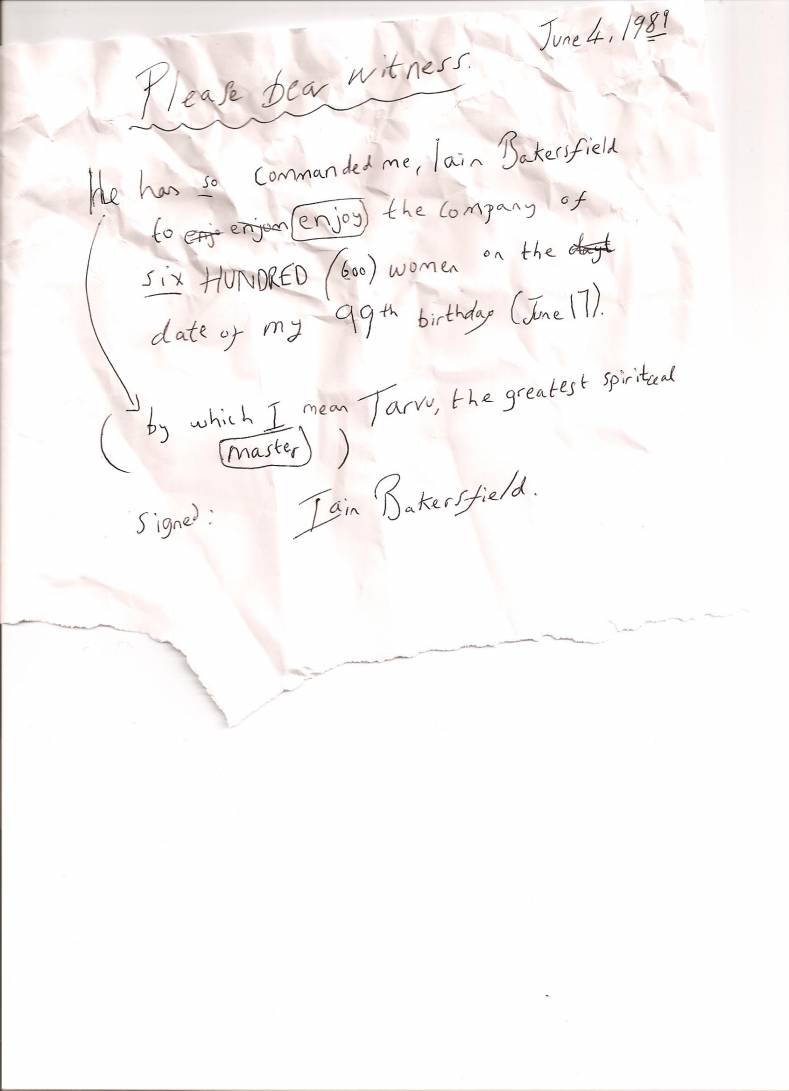 June 4, 1989
Please bear witness.
He has so commanded me, Iain Bakersfield
to enj enjom enjoy the company of
six HUNDRED (600) women on the dayt
date of my 99th birthday (June 17).
(by which I mean Tarvu, the greatest spiritual
master)
signed: Iain Bakersfield.